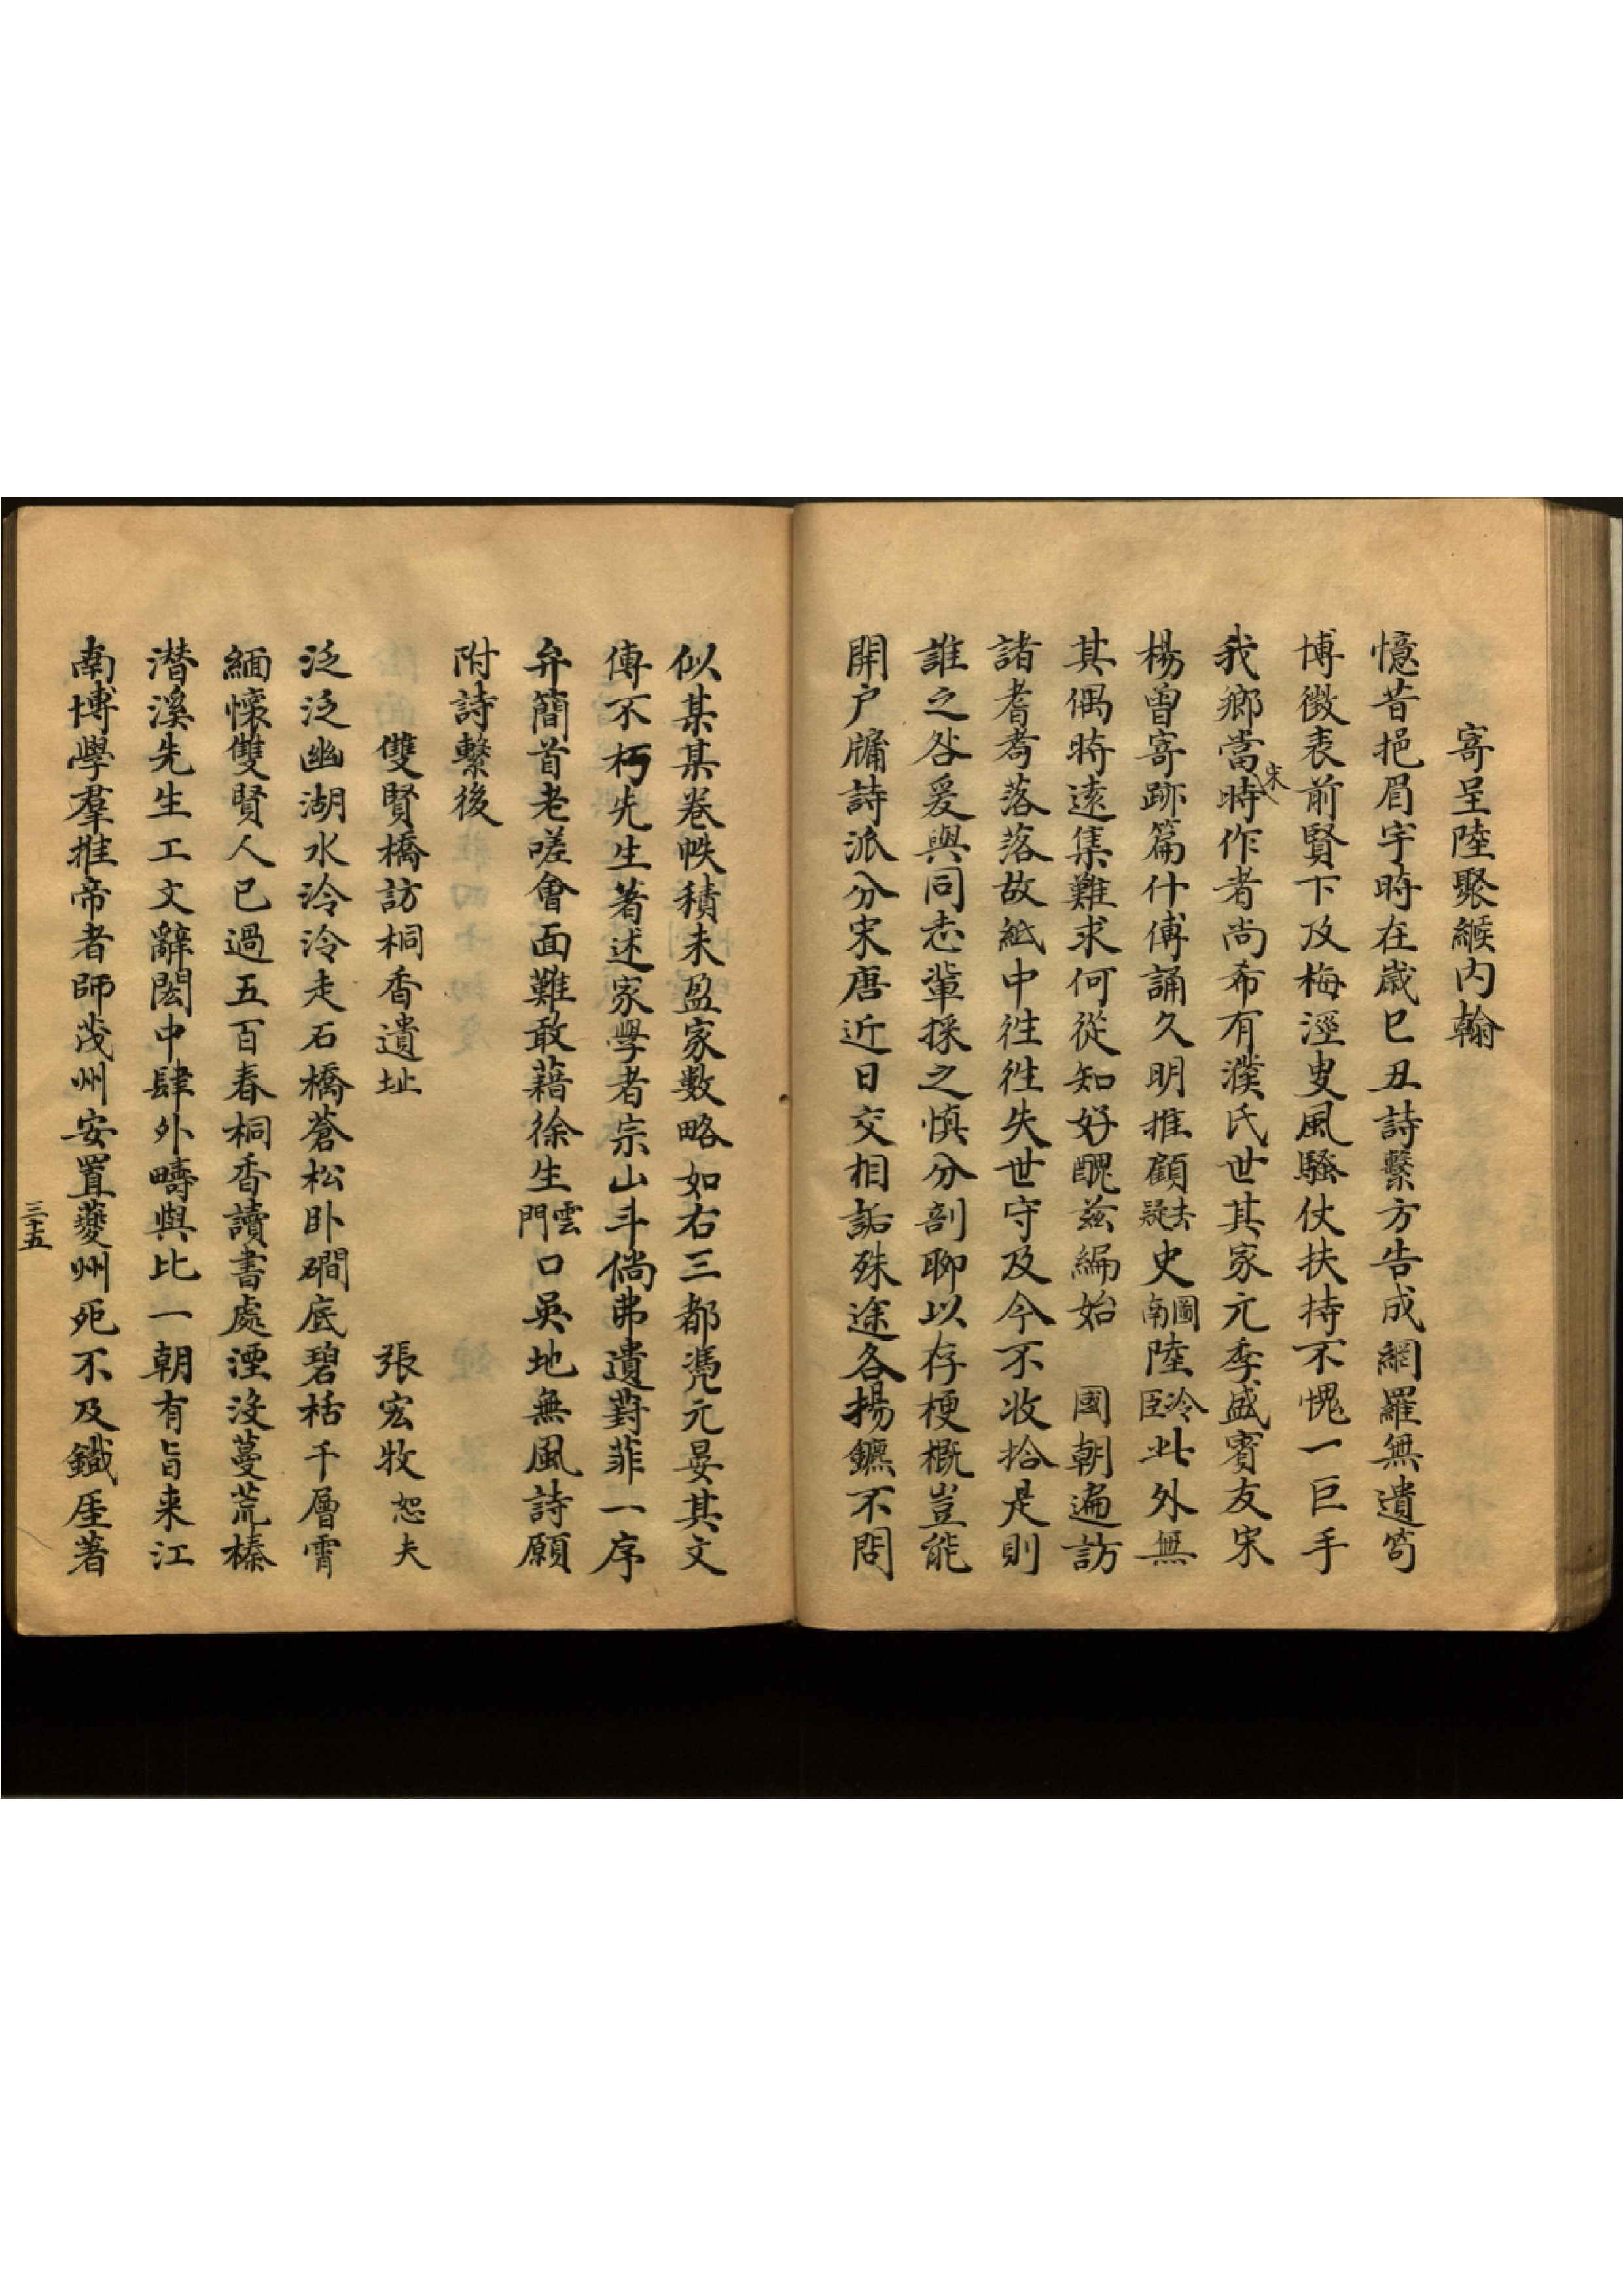 寄呈陸聚緱內翰
憶昔挹眉宇時在歲巳丑詩繫方告成網羅無遺笱
博徵表前賢下及梅涇叟風騷仗扶持不愧一巨手
我鄉當宋時作者尚希有濮氏世其家元季盛賓友宋
楊曾寄跡篇什傳誦久明推顧去疑史圖南陸冷臣此外無
其偶時遠集難求何從知好醜茲編始 國朝遍訪
諸耆耇落落故紙中徃徃失世守及今不收拾是則
誰之咎爰與同志輩採之慎分剖聊以存梗概豈能
開户牖詩派分宋唐近日交相詬殊途各揚鑣不問
似某某卷帙積未盈家數略如右三都凴元晏其文
傳不朽先生著述家學者宗山斗倘弗遺葑菲一序
弁簡首老嗟會面難敢藉徐生雲門口吳地無風詩願
附詩繫後
雙賢橋訪桐香遺址 張宏牧恕夫
泛泛幽湖水泠泠走石橋蒼松卧磵底碧栝千層霄
緬懷雙賢人已過五百春桐香讀書處湮沒蔓荒榛
潛溪先生工文辭閎中肆外疇與比一朝有旨来江
南博學羣推帝者師茂州安置夔州死不及鐵厓著
三十五